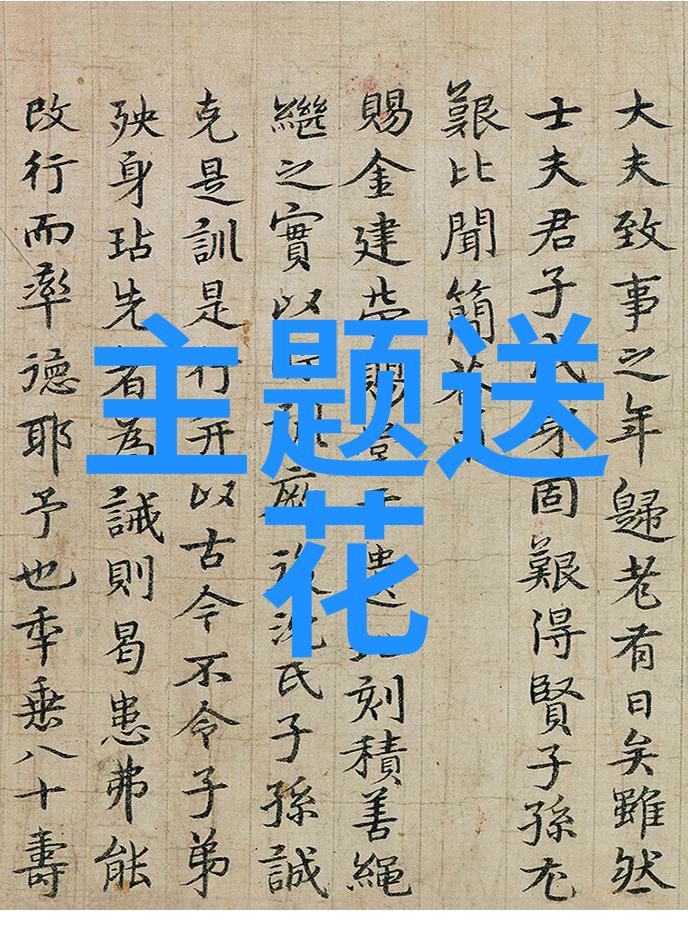 大夫致事之年歸老有日矣雖然
士夫君子成身固艱得賢子孫尤
艱比聞簡菴
賜金建賜遺刻積善繩
繼之實以沈氏子孫誠
克是訓是行开以古今不令子弟
殃身玷先者為誡則曷患弗能
改行而率德耶予也年垂八十壽
主题送
花